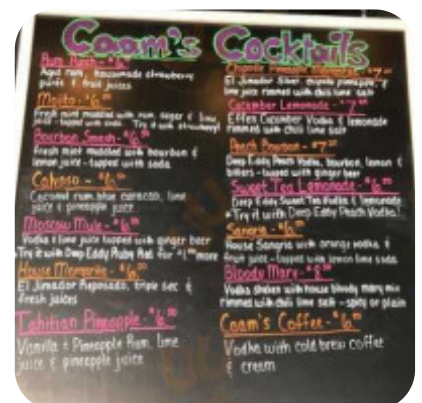 Caam's Cocktails
Rum Punch - $6
Aged rum, housemade strawberry
purée & fruit juices
Mojito - $6.
Fresh mint muddled with rum, sugar & lime
juice - topped with soda. Try it with strawberry!
Bourbon Smash - $6.50
fresh mint muddled with bourbon &
lemon juice - topped with soda
Calypso - $6.
Coconut rum, blue curacao, lime
juice & pineapple juice
Moscow Mule - $6.
Vodka & lime juice topped with ginger beer
Try it with Deep Eddy Ruby Red for $1.00 more
House Margarita - $6.
El Jimador Reposado, triple sec &
fresh juices
Tahitian Pineapple - $6.50
Vanilla & Pineapple Rum, lime
juice & pineapple juice
Chipotle Pineapple - $7.
El Jimador Silver, chipotle pineapple, &
lime juice rimmed with chili lime salt
Cucumber Lemonade - $7.
Effen Cucumber Vodka & lemonade
rimmed with chili lime salt
Peach Bourbon - $7.
Deep Eddy Peach Vodka, bourbon, lemon &
bitters - topped with ginger beer
Sweet Tea Lemonade - $6.
Deep Eddy Sweet Tea Vodka & lemonade
*Try it with Deep Eddy Peach Vodka!
Sangria - $6.
House Sangria with orange vodka &
fruit juice - topped with lemon lime soda
Bloody Mary - $8.
Vodka shaken with house bloody mary mix
rimmed with chili lime salt - spicy or plain
Caam's Coffee - $6.
Vodka with cold brew coffee
& cream